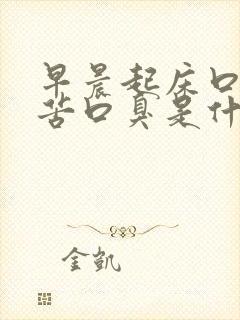 早晨起床口
苦口臭是什
金凯